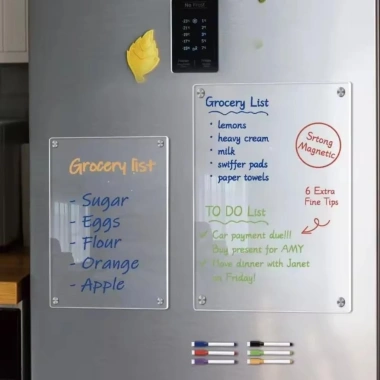 Grocery list
- Sugar
- Eggs
- Flour
- Orange
- Apple
Grocery List
• lemons
• heavy cream
• milk
• swiffer pads
• paper towels
Srtong
Magnetic
6 Extra
Fine Tips
TO DO List
✓ Car payment due!!!
Buy present for AMY
✓ Have dinner with Janet
on Friday!